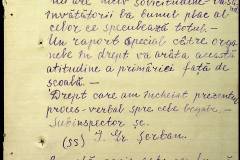 nu are nici solicitudine
învățătorii la bunul plac al
celor ce specubează totul.-
- Un raport special către orga
nele în drept va arăta această
atitudine a primăriei față de
școală.-
- Drept care am încheiat prezentul
proces-verbal spre cele legale.-
- Subinspector șc.
(ss) I. Gr. Șerban.